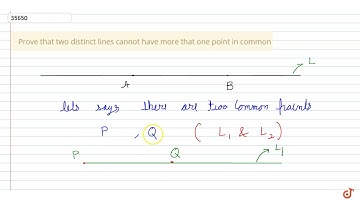 35650
Prove that two distinct lines cannot have more that one point in common
L
A B
lets says there are two common points
P , Q ( L1 & L2 )
P Q L1